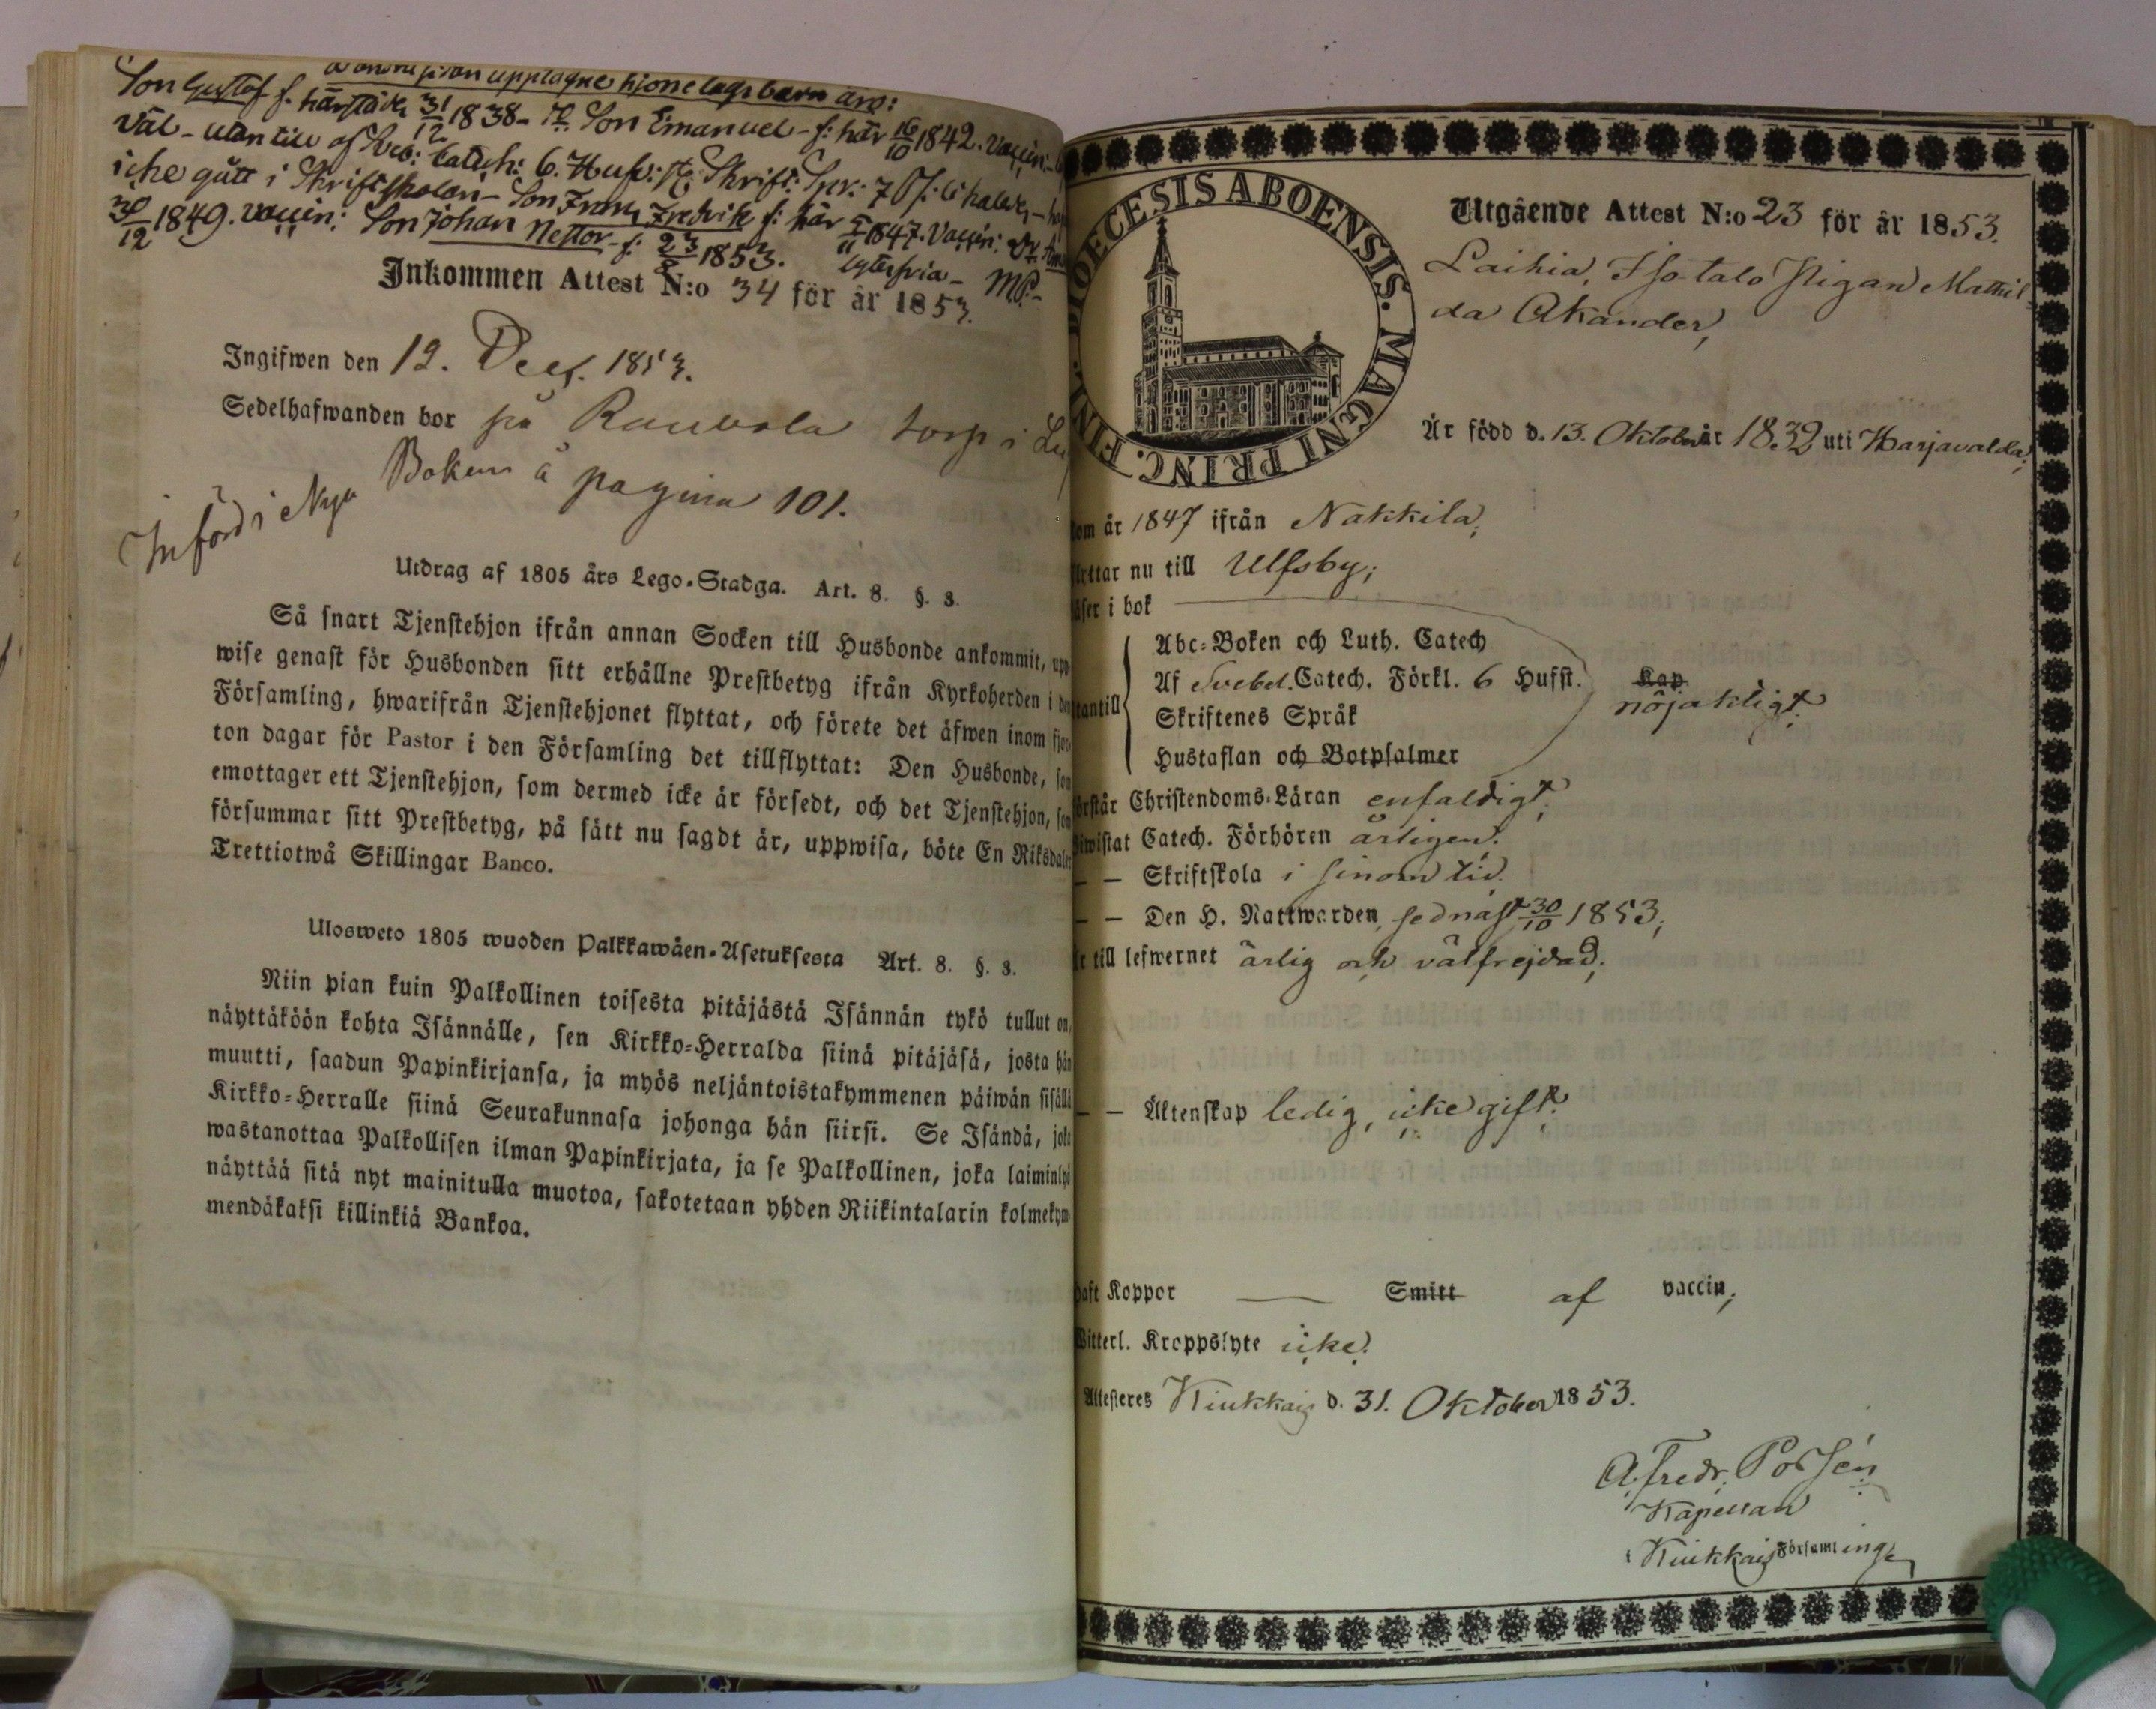 omstridan upptagne hjonelags barn äro:
Son Gustaf f. härstädes 31/12 1838 - Son Emanuel - f: här 16/10 1842. Vaccin:
väl - utantill af Sveb: Catech: 6. Hufv: st: Skrift: Spr: 7
icke gått i Skriftskolan - Son Frans Fredrik f: här 1847. Vaccin:
30/12 1849. vaccin: Son Johan Nestor - f: 23/8 1853. lytesfria - M.P.-
Inkommen Attest N:o 34 för år 1853.
Ingifwen den 12. Dec. 1853.
Sedelhafwanden bor på Raubola torp i
Införd i Nya Boken å pagina 101.
Utdrag af 1805 års Lego-Stadga. Art. 8. §. 3.
Så snart Tjenstehjon ifrån annan Socken till Husbonde ankommit, upp-
wise genast för Husbonden sitt erhållne Prestbetyg ifrån Kyrkoherden i den
Församling, hwarifrån Tjenstehjonet flyttat, och förete det äfwen inom fjor-
ton dagar för Pastor i den Församling det tillflyttat: Den Husbonde, som
emottager ett Tjenstehjon, som dermed icke är försedt, och det Tjenstehjon, som
försummar sitt Prestbetyg, på sätt nu sagdt är, uppwisa, böte En Riksdaler
Trettiotwå Skillingar Banco.
Ulosweto 1805 wuoden Palkkawäen-Asetuksesta Art. 8. §. 3.
Niin pian kuin Palkollinen toisesta pitäjästä Isännän tykö tullut on,
näyttäköön kohta Isännälle, sen Kirkko-Herralda siinä pitäjäsä, josta hän
muutti, saadun Papinkirjansa, ja myös neljäntoistakymmenen päiwän sisällä
Kirkko-Herralle siinä Seurakunnasa johonga hän siirsi. Se Isändä, joka
wastanottaa Palkollisen ilman Papinkirjata, ja se Palkollinen, joka laiminlyö
näyttää sitä nyt mainitulla muotoa, sakotetaan yhden Riikintalarin kolmekym-
mendäkaksi killinkiä Bankoa.
DIOECESIS ABOENSIS. MAGNI PRINC. FINL.
Utgående Attest N:o 23 för år 1853.
Laihia, Isotalo pigan Mathil-
da Akander,
Är född d. 13. Oktober år 1832 uti Harjavalda;
kom år 1847 ifrån Nakkila;
flyttar nu till Ulfsby;
läser i bok
utantill
Abc-Boken och Luth. Catech
Af Svebel. Catech. Förkl. 6 Hufst. Kap
Skriftenes Språk
nöjaktigt.
Hustaflan och Botpsalmer
förstår Christendoms-Läran enfaldigt;
biwistat Catech. Förhören årligen.
— — Skriftskola i sinom tid.
— — Den H. Nattwarden, sednast 30/10 1853;
är till lefwernet ärlig och välfrejdad;
— — Äktenskap ledig, icke gift.
haft Koppor — Smitt af vaccin;
Witterl. Kroppslyte icke.
Attesteres Kiukkais d. 31. Oktober 1853.
A. Fredr. Porsén
Kapellan
i Kiukkais Församling